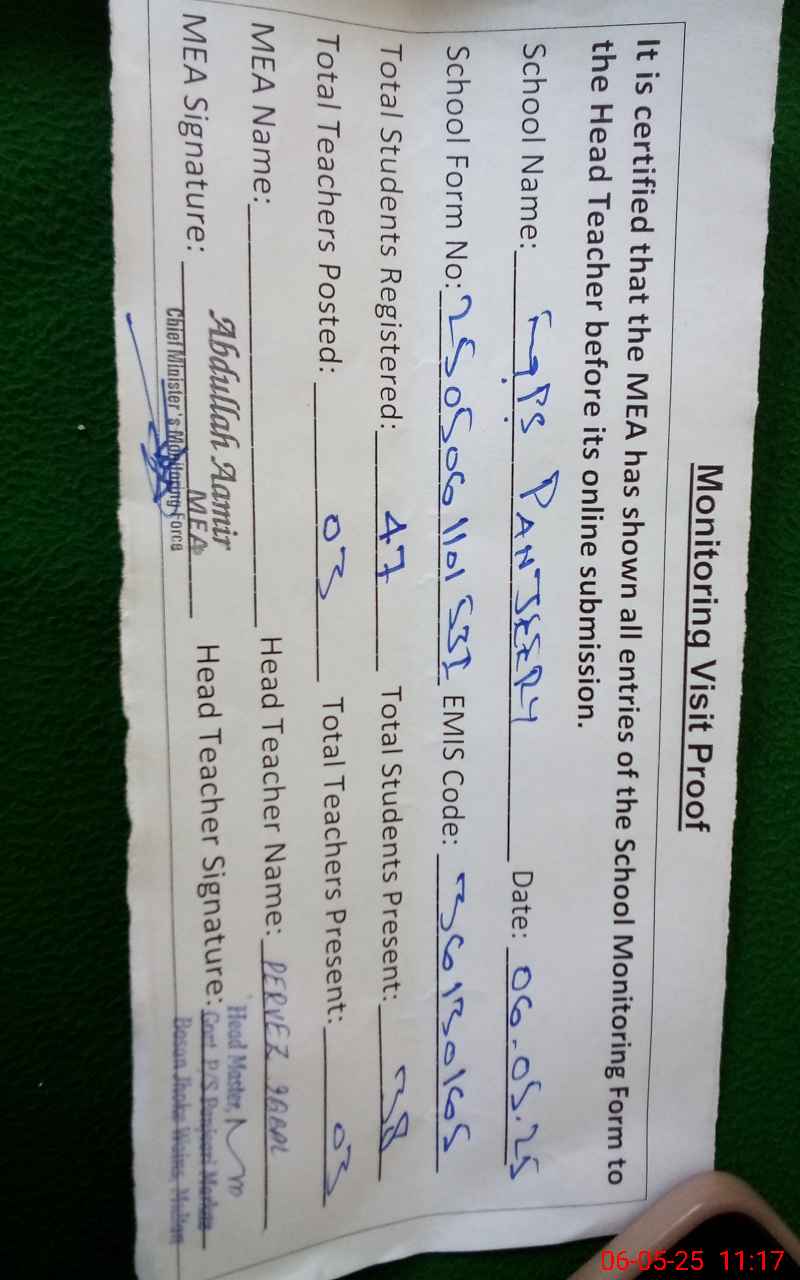 Monitoring Visit Proof
It is certified that the MEA has shown all entries of the School Monitoring Form to
the Head Teacher before its online submission.
School Name: PANJSERY Date: 06-05-25
School Form No: EMIS Code: 36130165
Total Students Registered: 47 Total Students Present: 38
Total Teachers Posted: 03 Total Teachers Present: 03
MEA Name: Abdullah Aamir Head Teacher Name: PERVEZ IQBAL
MEA
MEA Signature: Chief Minister's Monitoring Force Head Teacher Signature:
Head Master,
Govt P/S
Bosan Multan
06-05-25 11:17